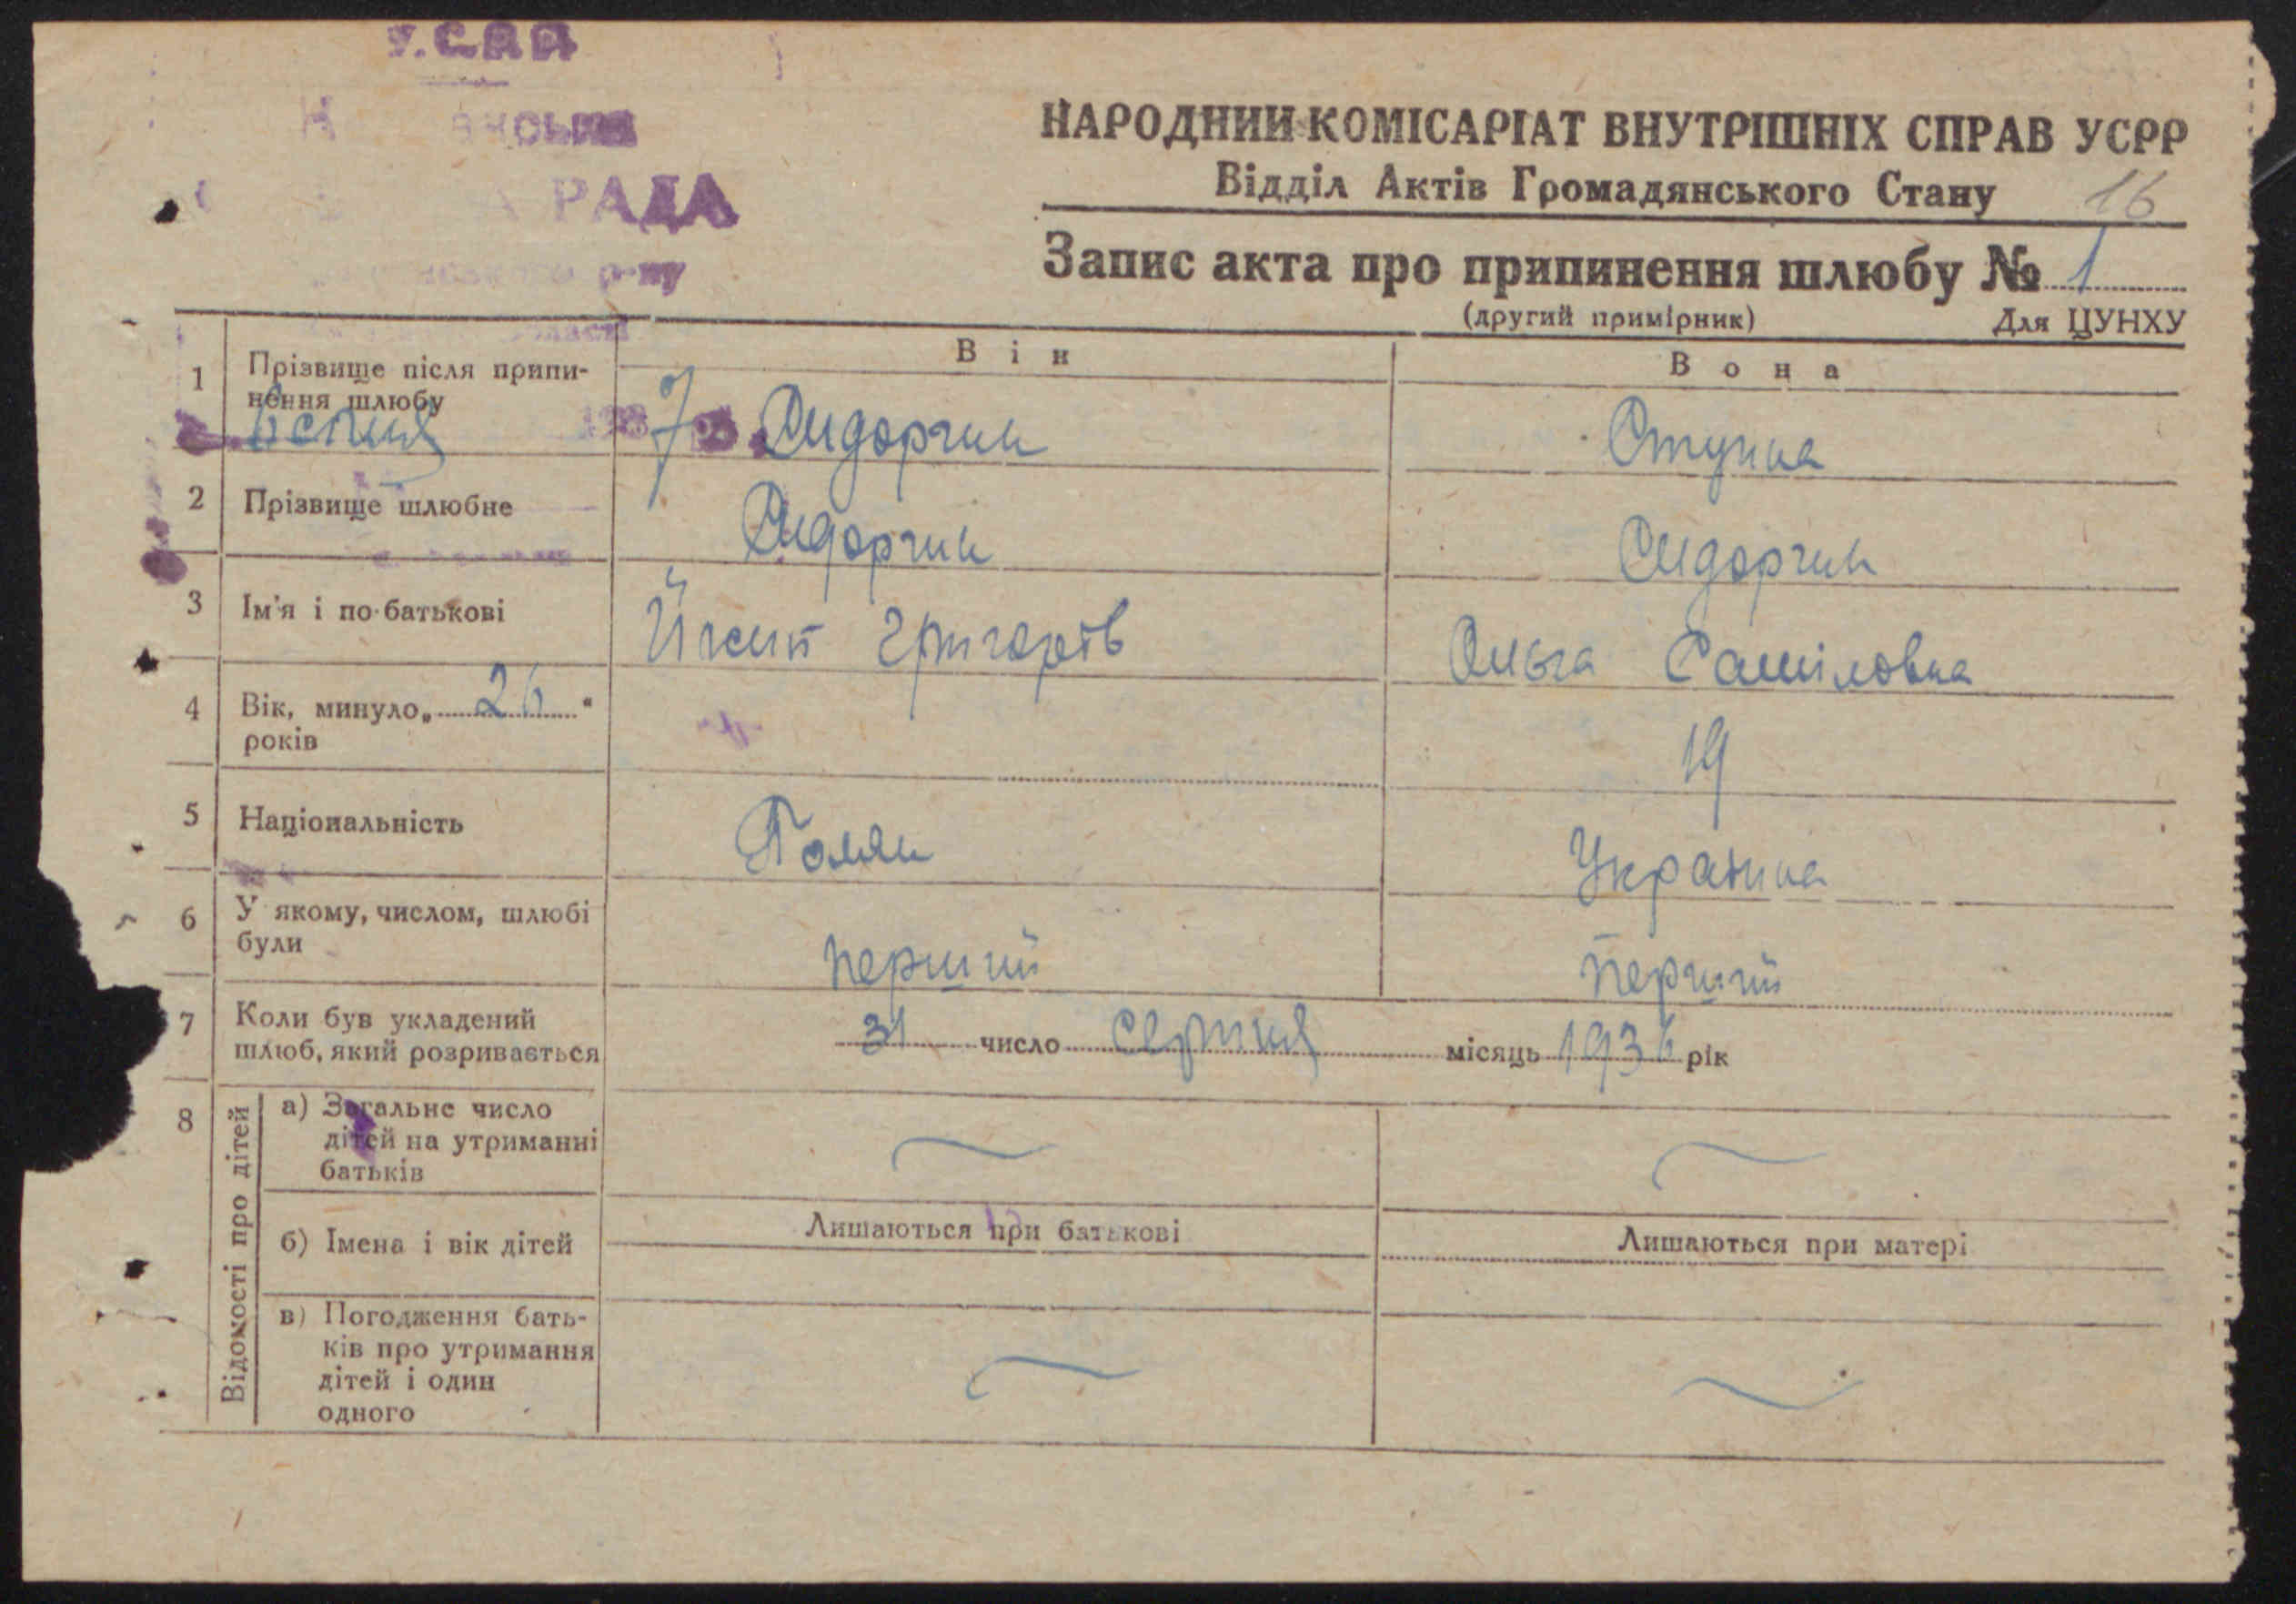 УСРР
РАДА
р-ну
області
НАРОДНИЙ КОМІСАРІАТ ВНУТРІШНІХ СПРАВ УСРР
Відділ Актів Громадянського Стану 16
Запис акта про припинення шлюбу № 1
(другий примірник) Для ЦУНХУ
Він Вона
1 Прізвище після припи-
нення шлюбу Сидорчик Ступка
193 7 р.
2 Прізвище шлюбне Сидорчик Сидорчик
3 Ім'я і по-батькові Григорів Ольга Саміловна
4 Вік, минуло „ 26 “
років 19
5 Національність Поляк Українка
6 У якому, числом, шлюбі
були перший перший
7 Коли був укладений
шлюб, який розривається 31 число серпня місяць 1936 рік
8 Відомості про дітей
а) Загальне число
дітей на утриманні
батьків
б) Імена і вік дітей Лишаються при батькові Лишаються при матері
в) Погодження бать-
ків про утримання
дітей і один
одного